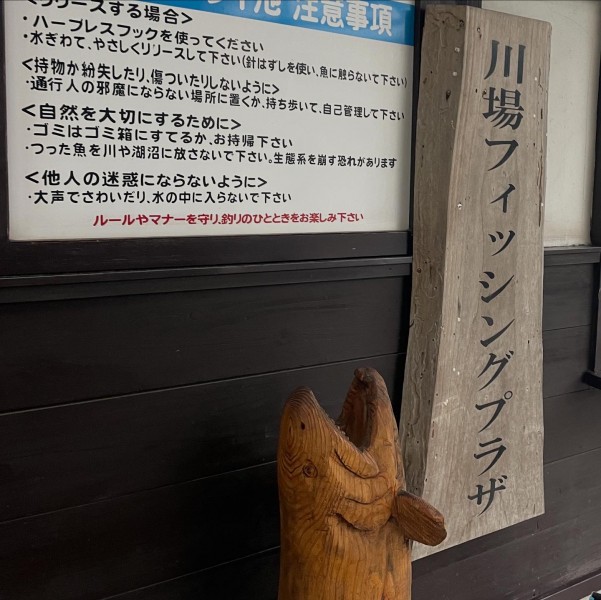 池 注意事項
リリースする場合>
・ハーブレスフックを使ってください
・水ぎわで、やさしくリリースして下さい(針はずしを使い、魚に触らないで下さい)
<持物か紛失したり、傷ついたりしないように>
・通行人の邪魔にならない場所に置くか、持ち歩いて、自己管理して下さい
<自然を大切にするために>
・ゴミはゴミ箱にすてるか、お持帰下さい
・つった魚を川や湖沼に放さないで下さい。生態系を崩す恐れがあります
<他人の迷惑にならないように>
・大声でさわいだり、水の中に入らないで下さい
ルールやマナーを守り、釣りのひとときをお楽しみ下さい
川場フィッシングプラザ